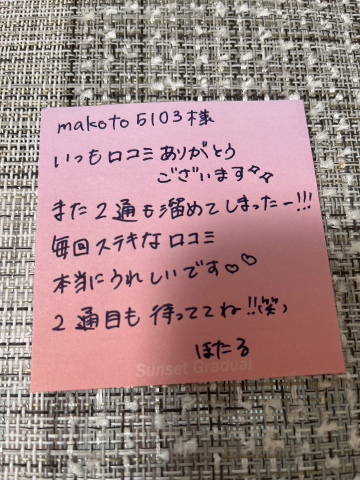 makoto5103様
いつも口コミありがとう
ございます✧✧
また2通も溜めてしまったー!!!
毎回ステキな口コミ
本当にうれしいです♡♡
2通目も待っててね!!(笑)
ほたる
Sunset Gradual